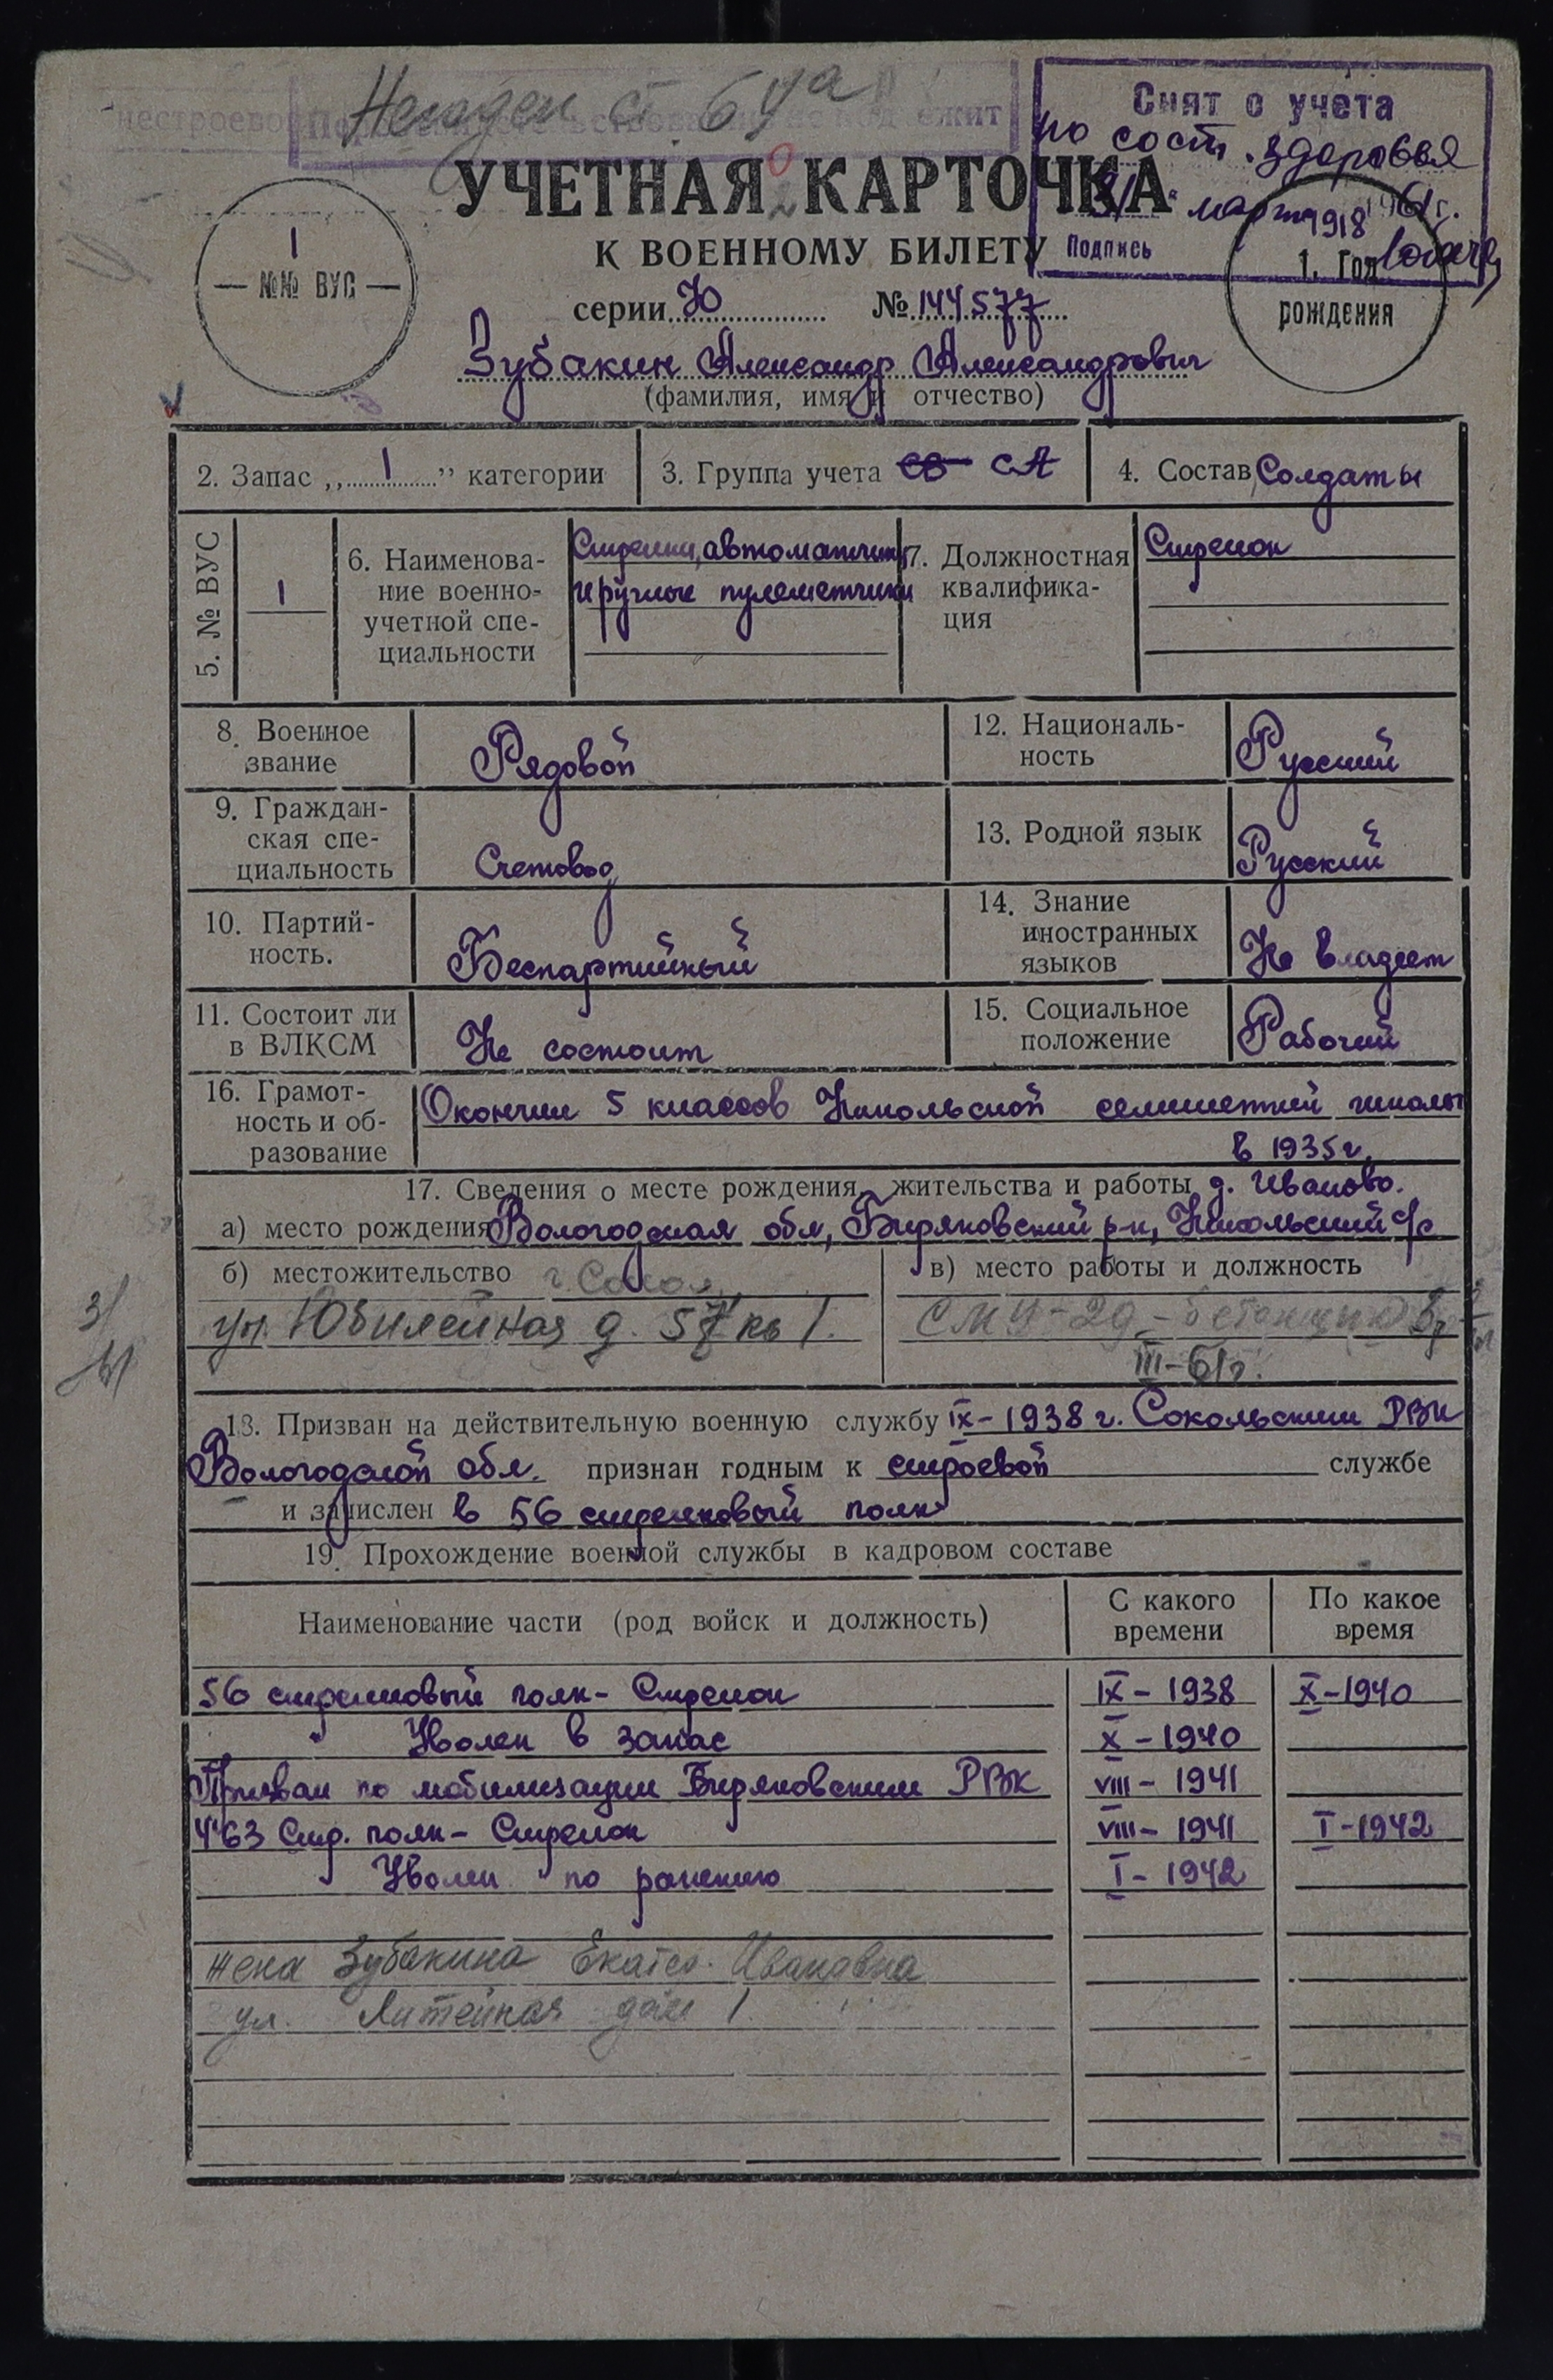 Негоден ст 64а
Снят с учета
по сост. здоровья
31 марта 1961 г.
Подпись
УЧЕТНАЯ КАРТОЧКА
К ВОЕННОМУ БИЛЕТУ
1
№№ ВУС
1918
1. Год
рождения
серии Ю № 144577
Зубакин Александр Александрович
(фамилия, имя и отчество)
2. Запас „1" категории
3. Группа учета СВ СА
4. Состав Солдаты
5. № ВУС
1
6. Наименова-
ние военно-
учетной спе-
циальности
Стрелки, автоматчики
и ручные пулеметчики
7. Должностная
квалифика-
ция
Стрелок
8. Военное
звание
Рядовой
12. Националь-
ность
Русский
9. Граждан-
ская спе-
циальность
Счетовод
13. Родной язык
Русский
10. Партий-
ность.
Беспартийный
14. Знание
иностранных
языков
Не владеет
11. Состоит ли
в ВЛКСМ
Не состоит
15. Социальное
положение
Рабочий
16. Грамот-
ность и об-
разование
Окончил 5 классов Никольской семилетней школы
в 1935 г.
17. Сведения о месте рождения, жительства и работы д. Иваново.
а) место рождения Вологодская обл, Биряковский р-н, Никольский с/с
б) местожительство г. Сокол
ул. Юбилейная д. 57 кв 1.
в) место работы и должность
СМУ-29 - бетонщик
III-61г.
18. Призван на действительную военную службу IX-1938 г. Сокольским РВК
Вологодской обл. признан годным к строевой службе
и зачислен в 56 стрелковый полк
19. Прохождение военной службы в кадровом составе
Наименование части (род войск и должность)
С какого
времени
По какое
время
56 стрелковый полк - Стрелок IX - 1938 X-1940
Уволен в запас X - 1940
Призван по мобилизации Биряковским РВК VIII - 1941
463 Стр. полк - Стрелок VIII - 1941 I-1942
Уволен по ранению I - 1942
жена Зубакина Екатер. Ивановна
ул. Литейная дом 1